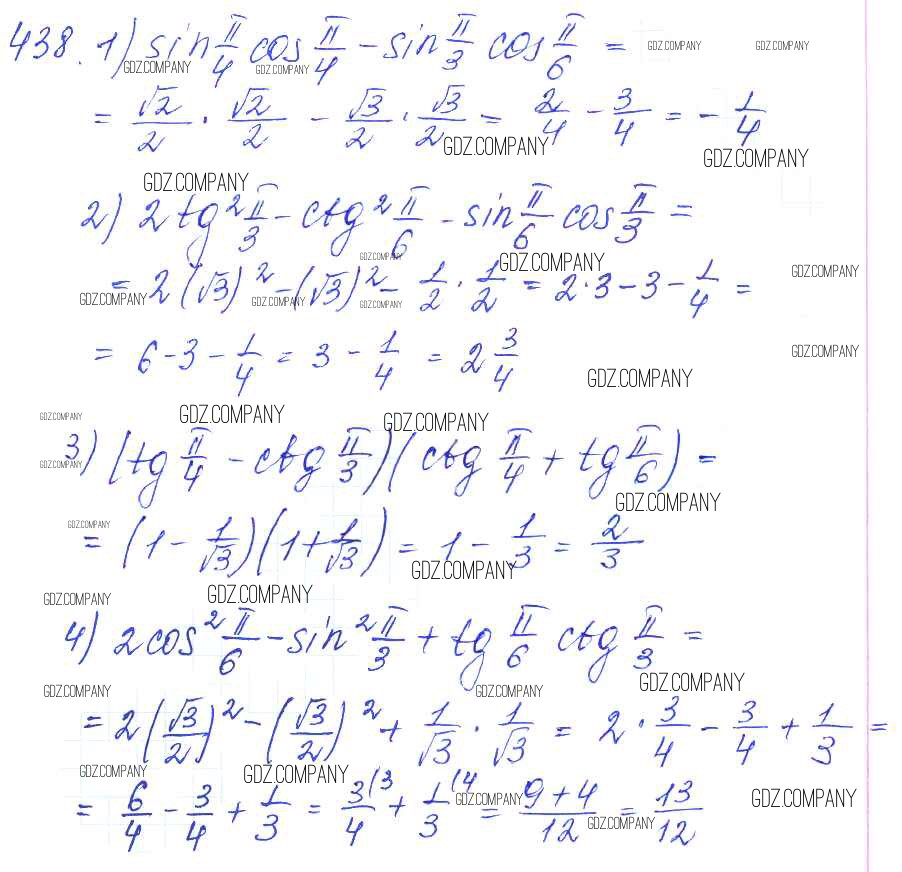 438. 1) sin π/4 cos π/4 - sin π/3 cos π/6 =
GDZ.COMPANY GDZ.COMPANY GDZ.COMPANY GDZ.COMPANY
= √2/2 · √2/2 - √3/2 · √3/2 = 2/4 - 3/4 = - 1/4
GDZ.COMPANY GDZ.COMPANY
GDZ.COMPANY
2) 2 tg² π/3 - ctg² π/6 - sin π/6 cos π/3 =
GDZ.COMPANY GDZ.COMPANY GDZ.COMPANY
= 2 (√3)² - (√3)² - 1/2 · 1/2 = 2·3 - 3 - 1/4 =
GDZ.COMPANY GDZ.COMPANY GDZ.COMPANY
= 6 - 3 - 1/4 = 3 - 1/4 = 2 3/4
GDZ.COMPANY GDZ.COMPANY
GDZ.COMPANY GDZ.COMPANY GDZ.COMPANY
3) (tg π/4 - ctg π/3)(ctg π/4 + tg π/6) =
GDZ.COMPANY GDZ.COMPANY
GDZ.COMPANY
= (1 - 1/√3)(1 + 1/√3) = 1 - 1/3 = 2/3
GDZ.COMPANY
GDZ.COMPANY GDZ.COMPANY
4) 2cos² π/6 - sin² π/3 + tg π/6 ctg π/3 =
GDZ.COMPANY GDZ.COMPANY GDZ.COMPANY
= 2 (√3/2)² - (√3/2)² + 1/√3 · 1/√3 = 2 · 3/4 - 3/4 + 1/3 =
GDZ.COMPANY GDZ.COMPANY
= 6/4 - 3/4 + 1/3 = 3/4 (3 + 1/3 (4 = 9+4/12 = 13/12
GDZ.COMPANY GDZ.COMPANY GDZ.COMPANY